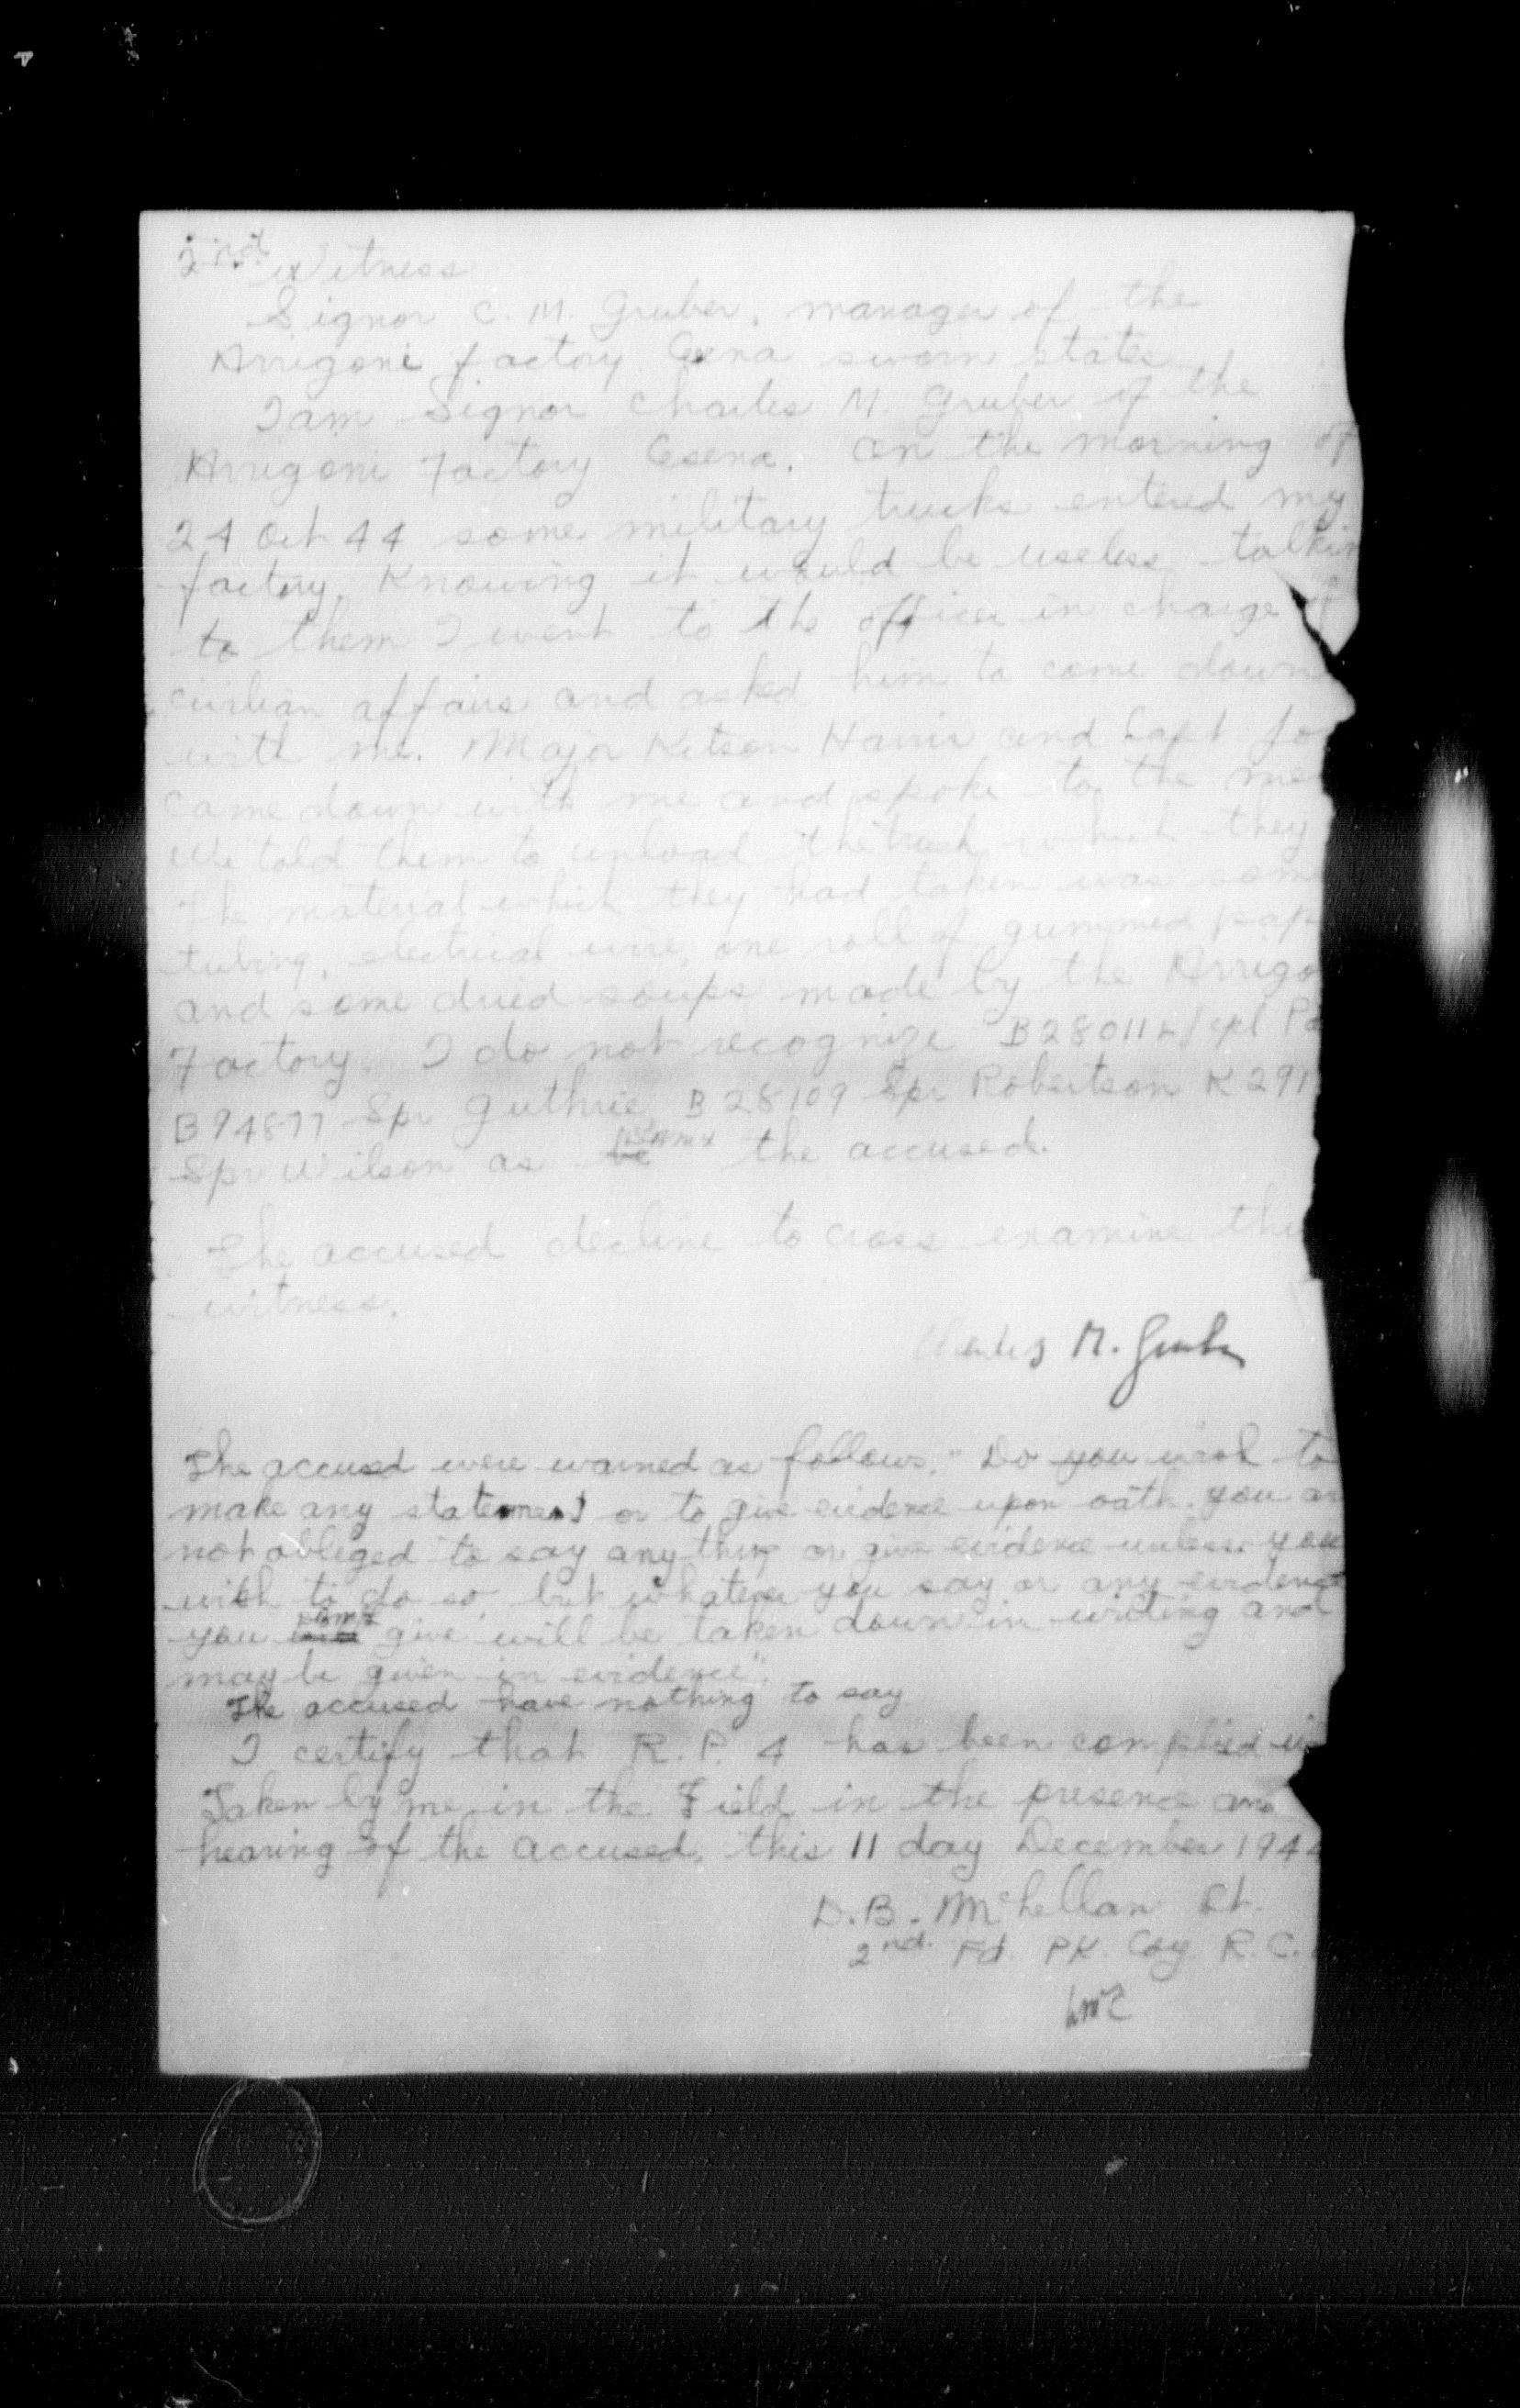 2nd Witness
Signor C. M. Gruber, manager of the
Arrigoni factory Cesena sworn states
I am Signor Charles M. Gruber of the
Arrigoni Factory Cesena. On the morning of
24 Oct 44 some military trucks entered my
factory. Knowing it would be useless talkin
to them I went to the officer in charge of
civilian affairs and asked him to come down
with me. Major Kitson Harris and Capt Jo
came down with me and spoke to the me
We told them to unload the truck which they
The material which they had taken was som
tubing, electrical wire, one roll of gummed pap
and some dried soups made by the Arrigo
Factory. I do not recognize B28011 L/Cpl
B94877 Spr Guthrie B28109 Spr Robertson K291
Spr Wilson as the accused.
The accused decline to cross examine this
witness.
Charles M. Gruber
The accused were warned as follows. "Do you wish to
make any statement or to give evidence upon oath. you ar
not obliged to say any thing or give evidence unless you
wish to do so, but whatever you say or any evidence
you give will be taken down in writing and
may be given in evidence".
The accused have nothing to say
I certify that R.P. 4 has been complied wi
Taken by me in the Field in the presence and
hearing of the accused, this 11 day December 1944
D.B. McLellan Lt.
2nd. Fd. PK. Coy R.C.